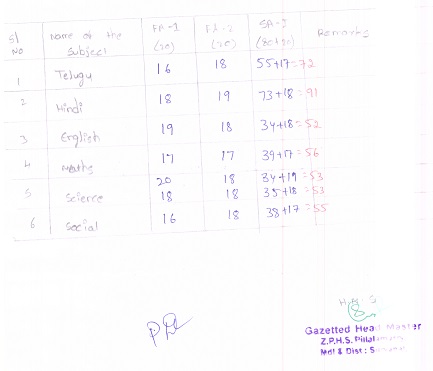 Sl No Name of the Subject FA-1 (20) FA-2 (20) SA-2 (80+20) Remarks
1 Telugu 16 18 55+17=72
2 Hindi 18 19 73+18=91
3 English 19 18 34+18=52
4 Maths 17 17 39+17=56
20 18 34+19=53
5 Science 18 18 35+18=53
6 Social 16 18 38+17=55
Gazetted Head Master
Z.P.H.S.
Mdl & Dist :